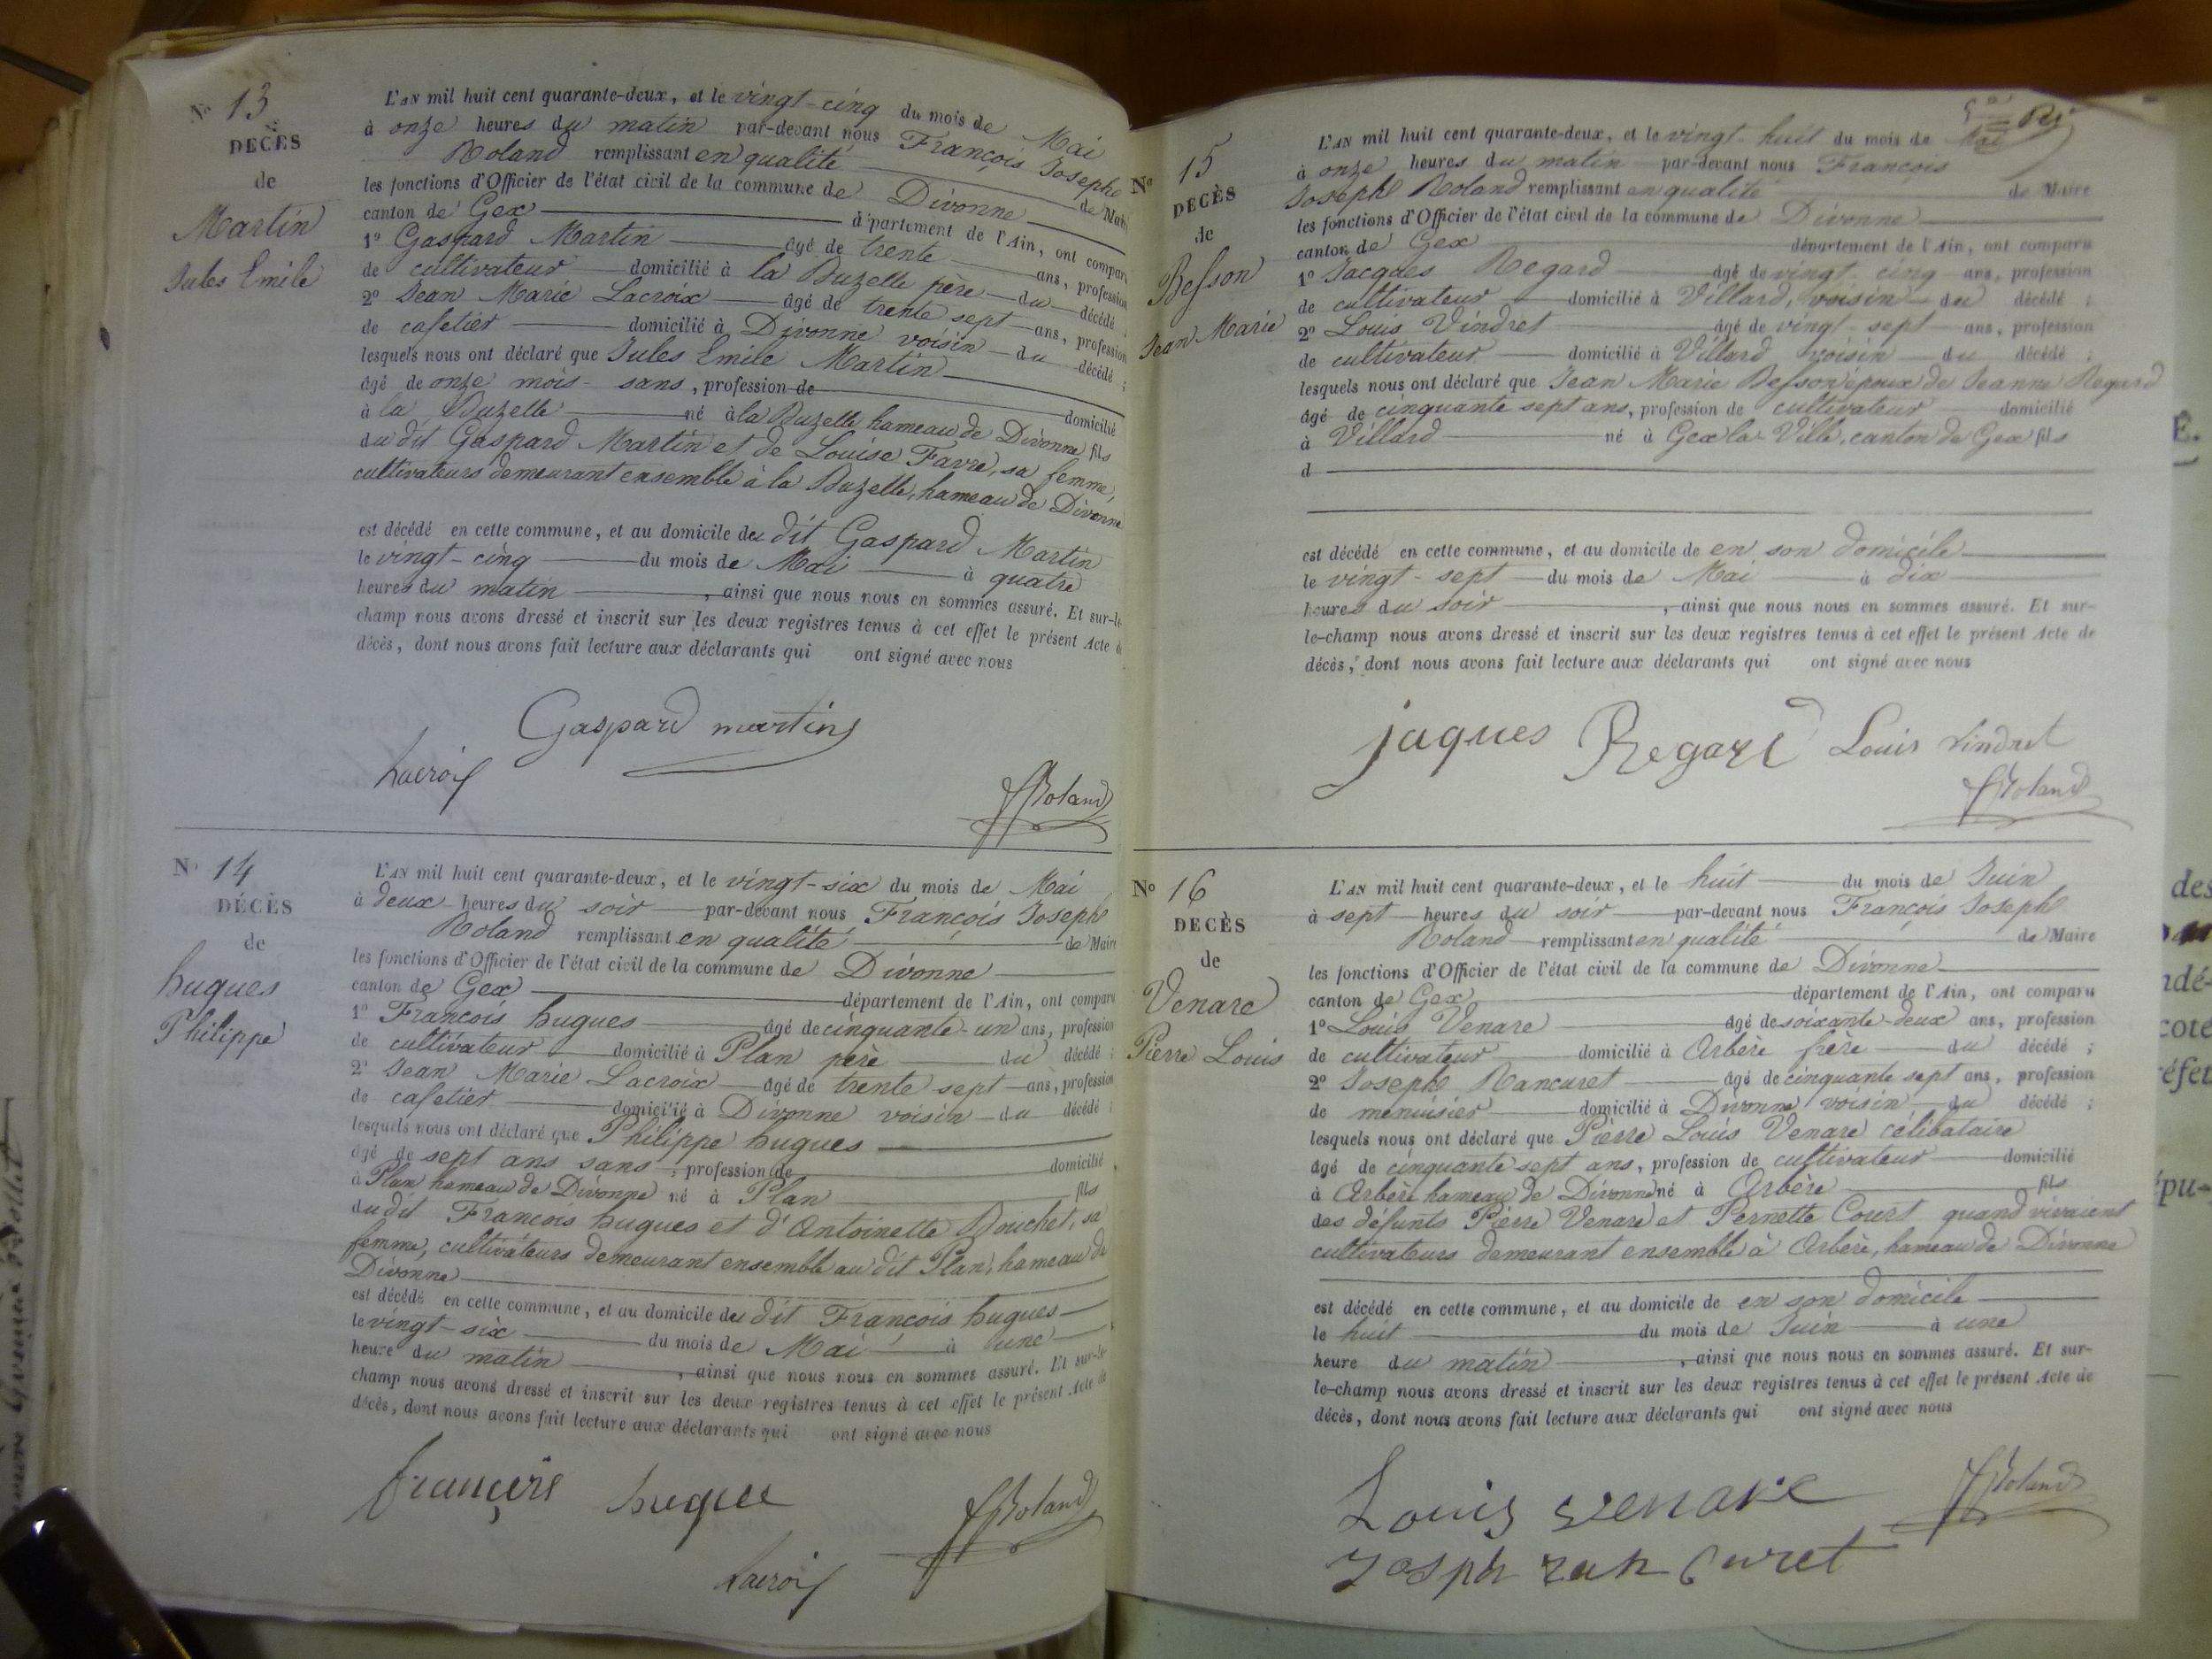 N° 13
DÉCÈS
de
Martin
Jules Emile
L'AN mil huit cent quarante-deux, et le vingt-cinq du mois de Mai
à onze heures du matin par-devant nous François Josephe
Roland remplissant en qualité de Maire
les fonctions d'Officier de l'état civil de la commune de Divonne
canton de Gex département de l'Ain, ont comparu
1° Gaspard Martin âgé de trente ans, profession
de cultivateur domicilié à la Buzelle père du décédé
2° Jean Marie Lacroix âgé de trente sept ans, profession
de cafetier domicilié à Divonne voisin du décédé ;
lesquels nous ont déclaré que Jules Emile Martin
âgé de onze mois sans, profession de domicilié
à la Buzelle né à la Buzelle hameau de Divonne fils
du dit Gaspard Martin et de Louise Favre, sa femme,
cultivateurs demeurant ensemble à la Buzelle, hameau de Divonne
est décédé en cette commune, et au domicile du dit Gaspard Martin
le vingt-cinq du mois de Mai à quatre
heures du matin, ainsi que nous nous en sommes assuré. Et sur-le
champ nous avons dressé et inscrit sur les deux registres tenus à cet effet le présent Acte de
décès, dont nous avons fait lecture aux déclarants qui ont signé avec nous
Gaspard martin
Lacroix
Roland
N° 14
DÉCÈS
de
hugues
Philippe
L'AN mil huit cent quarante-deux, et le vingt-six du mois de Mai
à deux heures du soir par-devant nous François Josephe
Roland remplissant en qualité de Maire
les fonctions d'Officier de l'état civil de la commune de Divonne
canton de Gex département de l'Ain, ont comparu
1° François hugues âgé de cinquante-un ans, profession
de cultivateur domicilié à Plan père du décédé ;
2° Jean Marie Lacroix âgé de trente sept ans, profession
de cafetier domicilié à Divonne voisin du décédé ;
lesquels nous ont déclaré que Philippe hugues
âgé de sept ans sans, profession de domicilié
à Plan hameau de Divonne né à Plan fils
du dit François hugues et d'Antoinette Bouchet, sa
femme, cultivateurs demeurant ensemble au dit Plan, hameau de
Divonne
est décédé en cette commune, et au domicile du dit François hugues
le vingt-six du mois de Mai à une
heure du matin, ainsi que nous nous en sommes assuré. Et sur-le
champ nous avons dressé et inscrit sur les deux registres tenus à cet effet le présent Acte de
décès, dont nous avons fait lecture aux déclarants qui ont signé avec nous
françois hugue
Roland
Lacroix
N° 15
DÉCÈS
de
Besson
Jean Marie
L'AN mil huit cent quarante-deux, et le vingt-huit du mois de Mai
à onze heures du matin par-devant nous François
Josephe Roland remplissant en qualité de Maire
les fonctions d'Officier de l'état civil de la commune de Divonne
canton de Gex département de l'Ain, ont comparu
1° Jacques Regard âgé de vingt-cinq ans, profession
de cultivateur domicilié à Villard, voisin du décédé ;
2° Louis Vindret âgé de vingt-sept ans, profession
de cultivateur domicilié à Villard voisin du décédé ;
lesquels nous ont déclaré que Jean Marie Besson époux de Jeanne Regard
âgé de cinquante sept ans, profession de cultivateur domicilié
à Villard né à Gex la Ville, canton de Gex fils
d
est décédé en cette commune, et au domicile de en son domicile
le vingt-sept du mois de Mai à dix
heures du soir, ainsi que nous nous en sommes assuré. Et sur-
le-champ nous avons dressé et inscrit sur les deux registres tenus à cet effet le présent Acte de
décès, dont nous avons fait lecture aux déclarants qui ont signé avec nous
jaques Regard Louis vindret
Roland
N° 16
DÉCÈS
de
Venare
Pierre Louis
L'AN mil huit cent quarante-deux, et le huit du mois de Juin
à sept heures du soir par-devant nous François Josephe
Roland remplissant en qualité de Maire
les fonctions d'Officier de l'état civil de la commune de Divonne
canton de Gex département de l'Ain, ont comparu
1° Louis Venare âgé de soixante-deux ans, profession
de cultivateur domicilié à Arbère frère du décédé ;
2° Joseph Rancuret âgé de cinquante sept ans, profession
de menuisier domicilié à Divonne voisin du décédé ;
lesquels nous ont déclaré que Pierre Louis Venare célibataire
âgé de cinquante sept ans, profession de cultivateur domicilié
à Arbère hameau de Divonne né à Arbère fils
des défunts Pierre Venare et Pernette Court quand vivaient
cultivateurs demeurant ensemble à Arbère, hameau de Divonne
est décédé en cette commune, et au domicile de en son domicile
le huit du mois de Juin à une
heure du matin, ainsi que nous nous en sommes assuré. Et sur-
le-champ nous avons dressé et inscrit sur les deux registres tenus à cet effet le présent Acte de
décès, dont nous avons fait lecture aux déclarants qui ont signé avec nous
Louis venare
Roland
Josph ran Curet